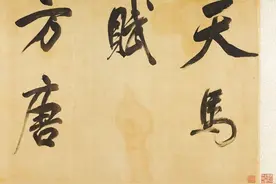 天馬
賦
方唐